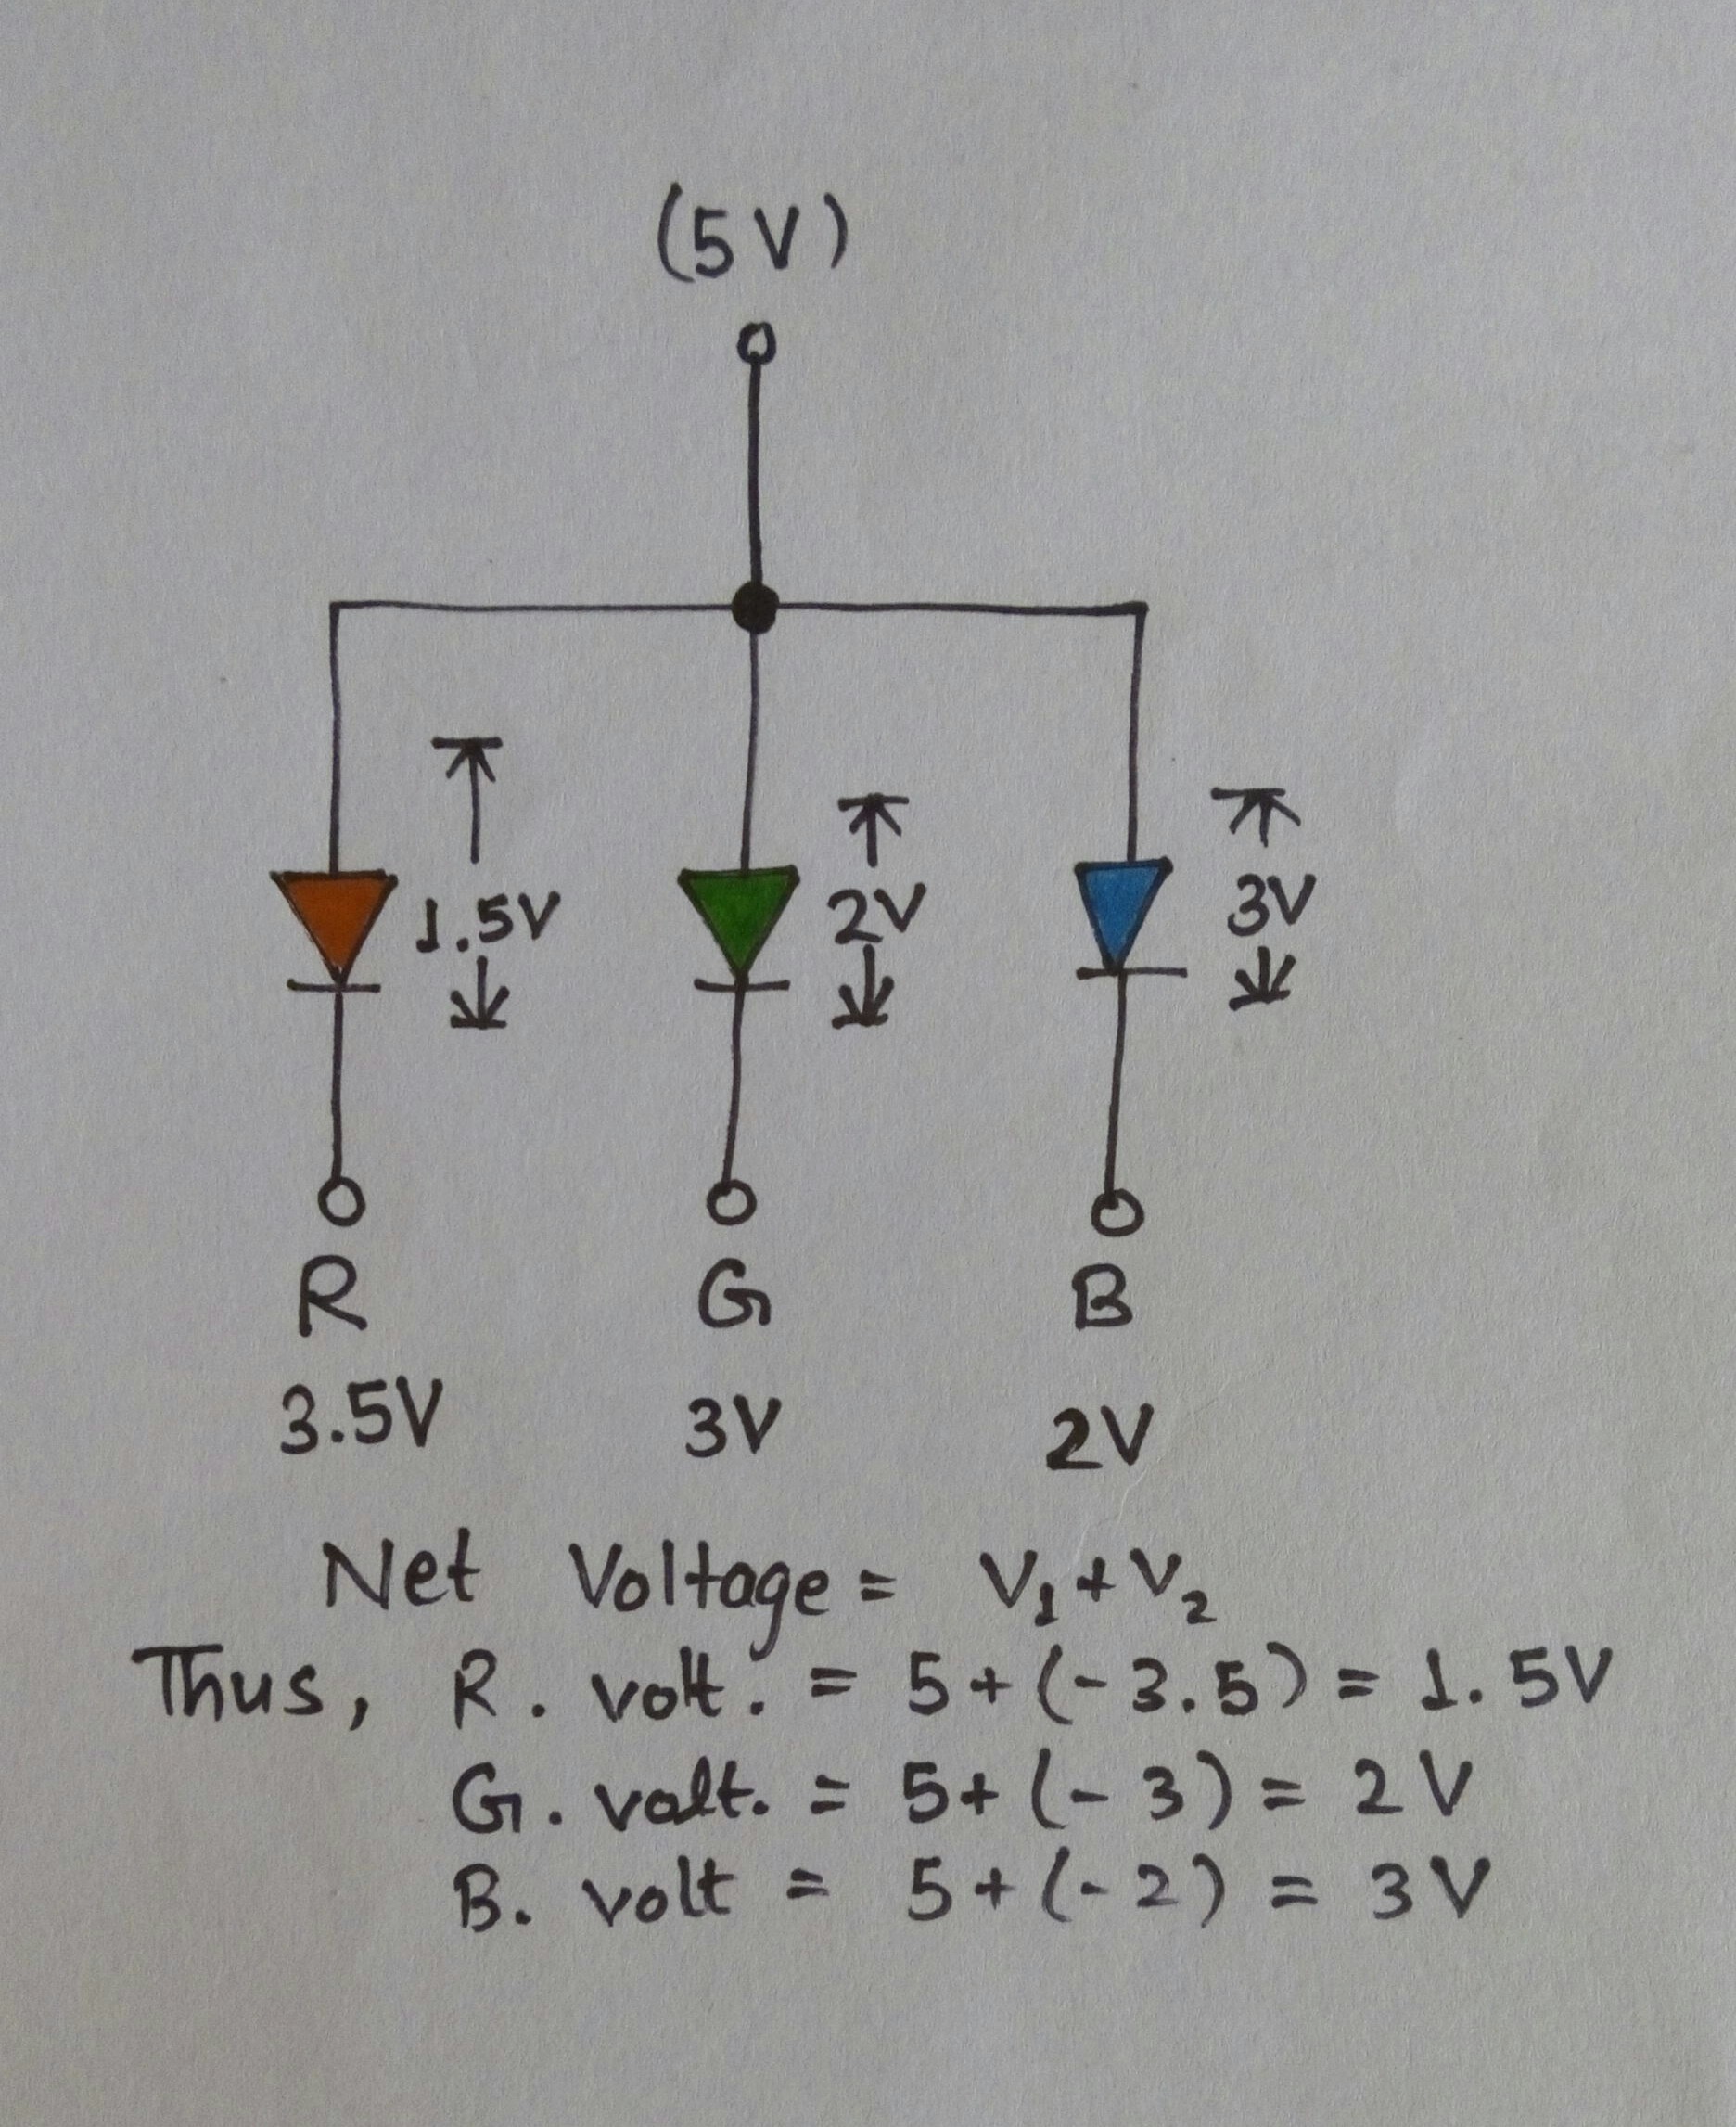 (5V)
1.5V 2V 3V
R G B
3.5V 3V 2V
Net Voltage = V₁ + V₂
Thus, R. volt. = 5 + (-3.5) = 1.5V
G. volt. = 5 + (-3) = 2V
B. volt = 5 + (-2) = 3V